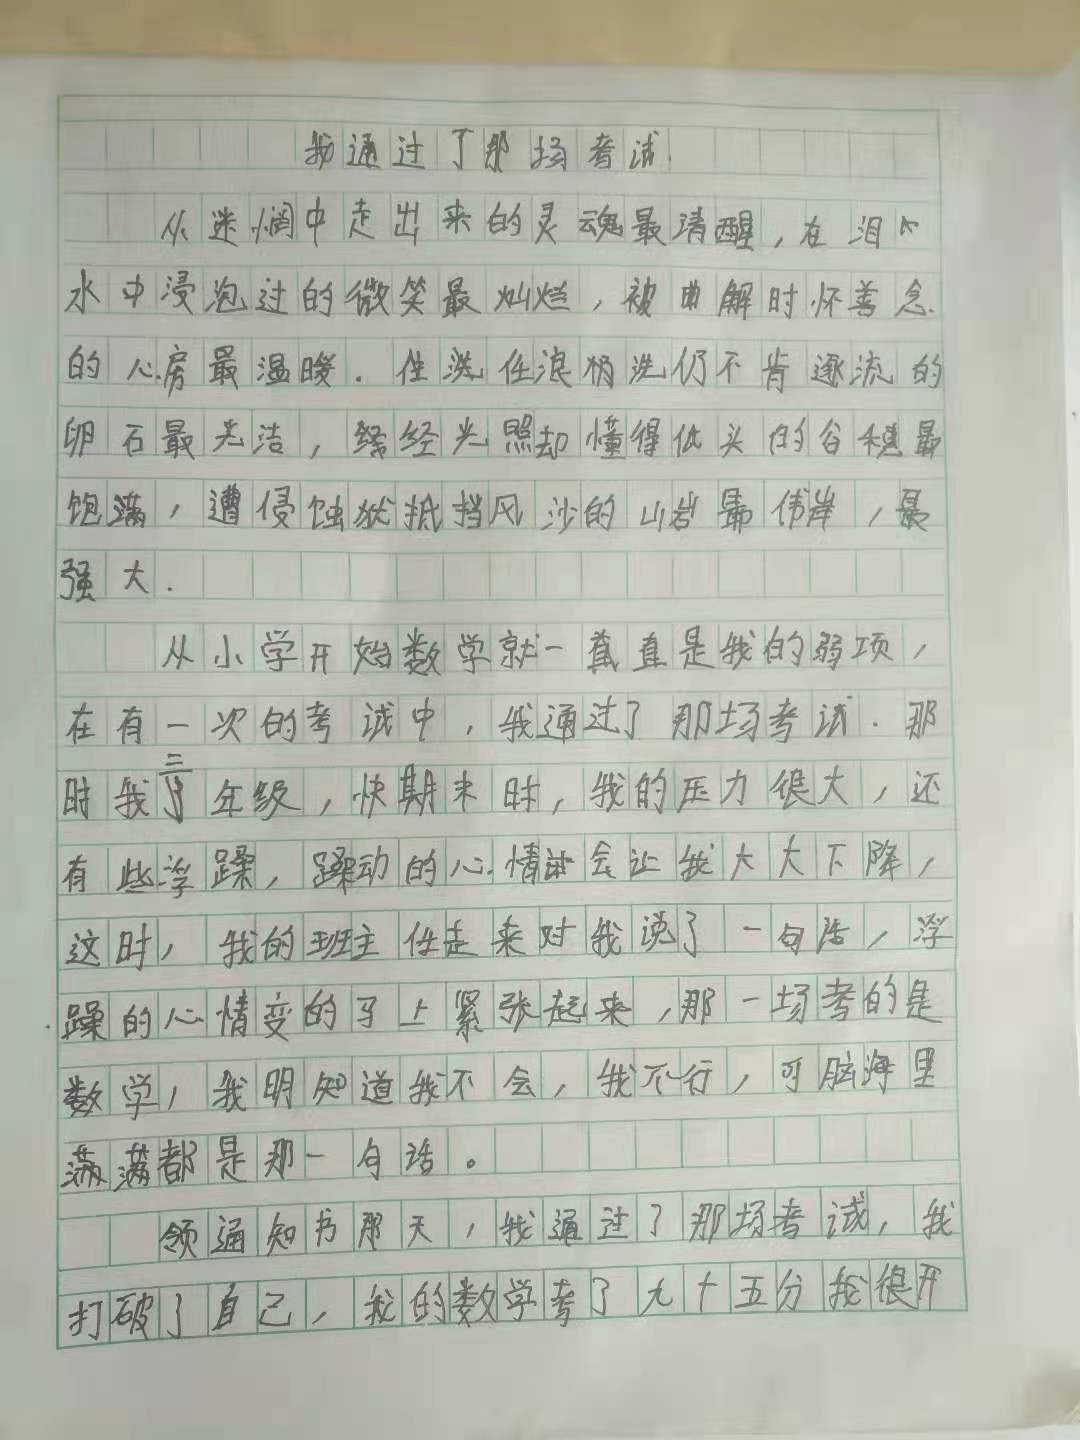 我通过了那场考试.
从迷惘中走出来的灵魂最清醒，在泪
水中浸泡过的微笑最灿烂，被曲解时怀善念
的心房最温暖.任洗任浪柄洗仍不肯逐流的
卵石最光洁，经光照却懂得低头的谷穗最
饱满，遭侵蚀犹抵挡风沙的山岩最伟岸，最
强大.
从小学开始数学就一直直是我的弱项，
在有一次的考试中，我通过了那场考试.那
时我三年级，快期末时，我的压力很大，还
有些浮躁，躁动的心情会让我大大下降，
这时，我的班主任走来对我说了一句话，浮
躁的心情变的马上紧张起来，那一场考的是
数学，我明知道我不会，我不行，可脑海里
满满都是那一句话。
领通知书那天，我通过了那场考试，我
打破了自己，我的数学考了九十五分我很开